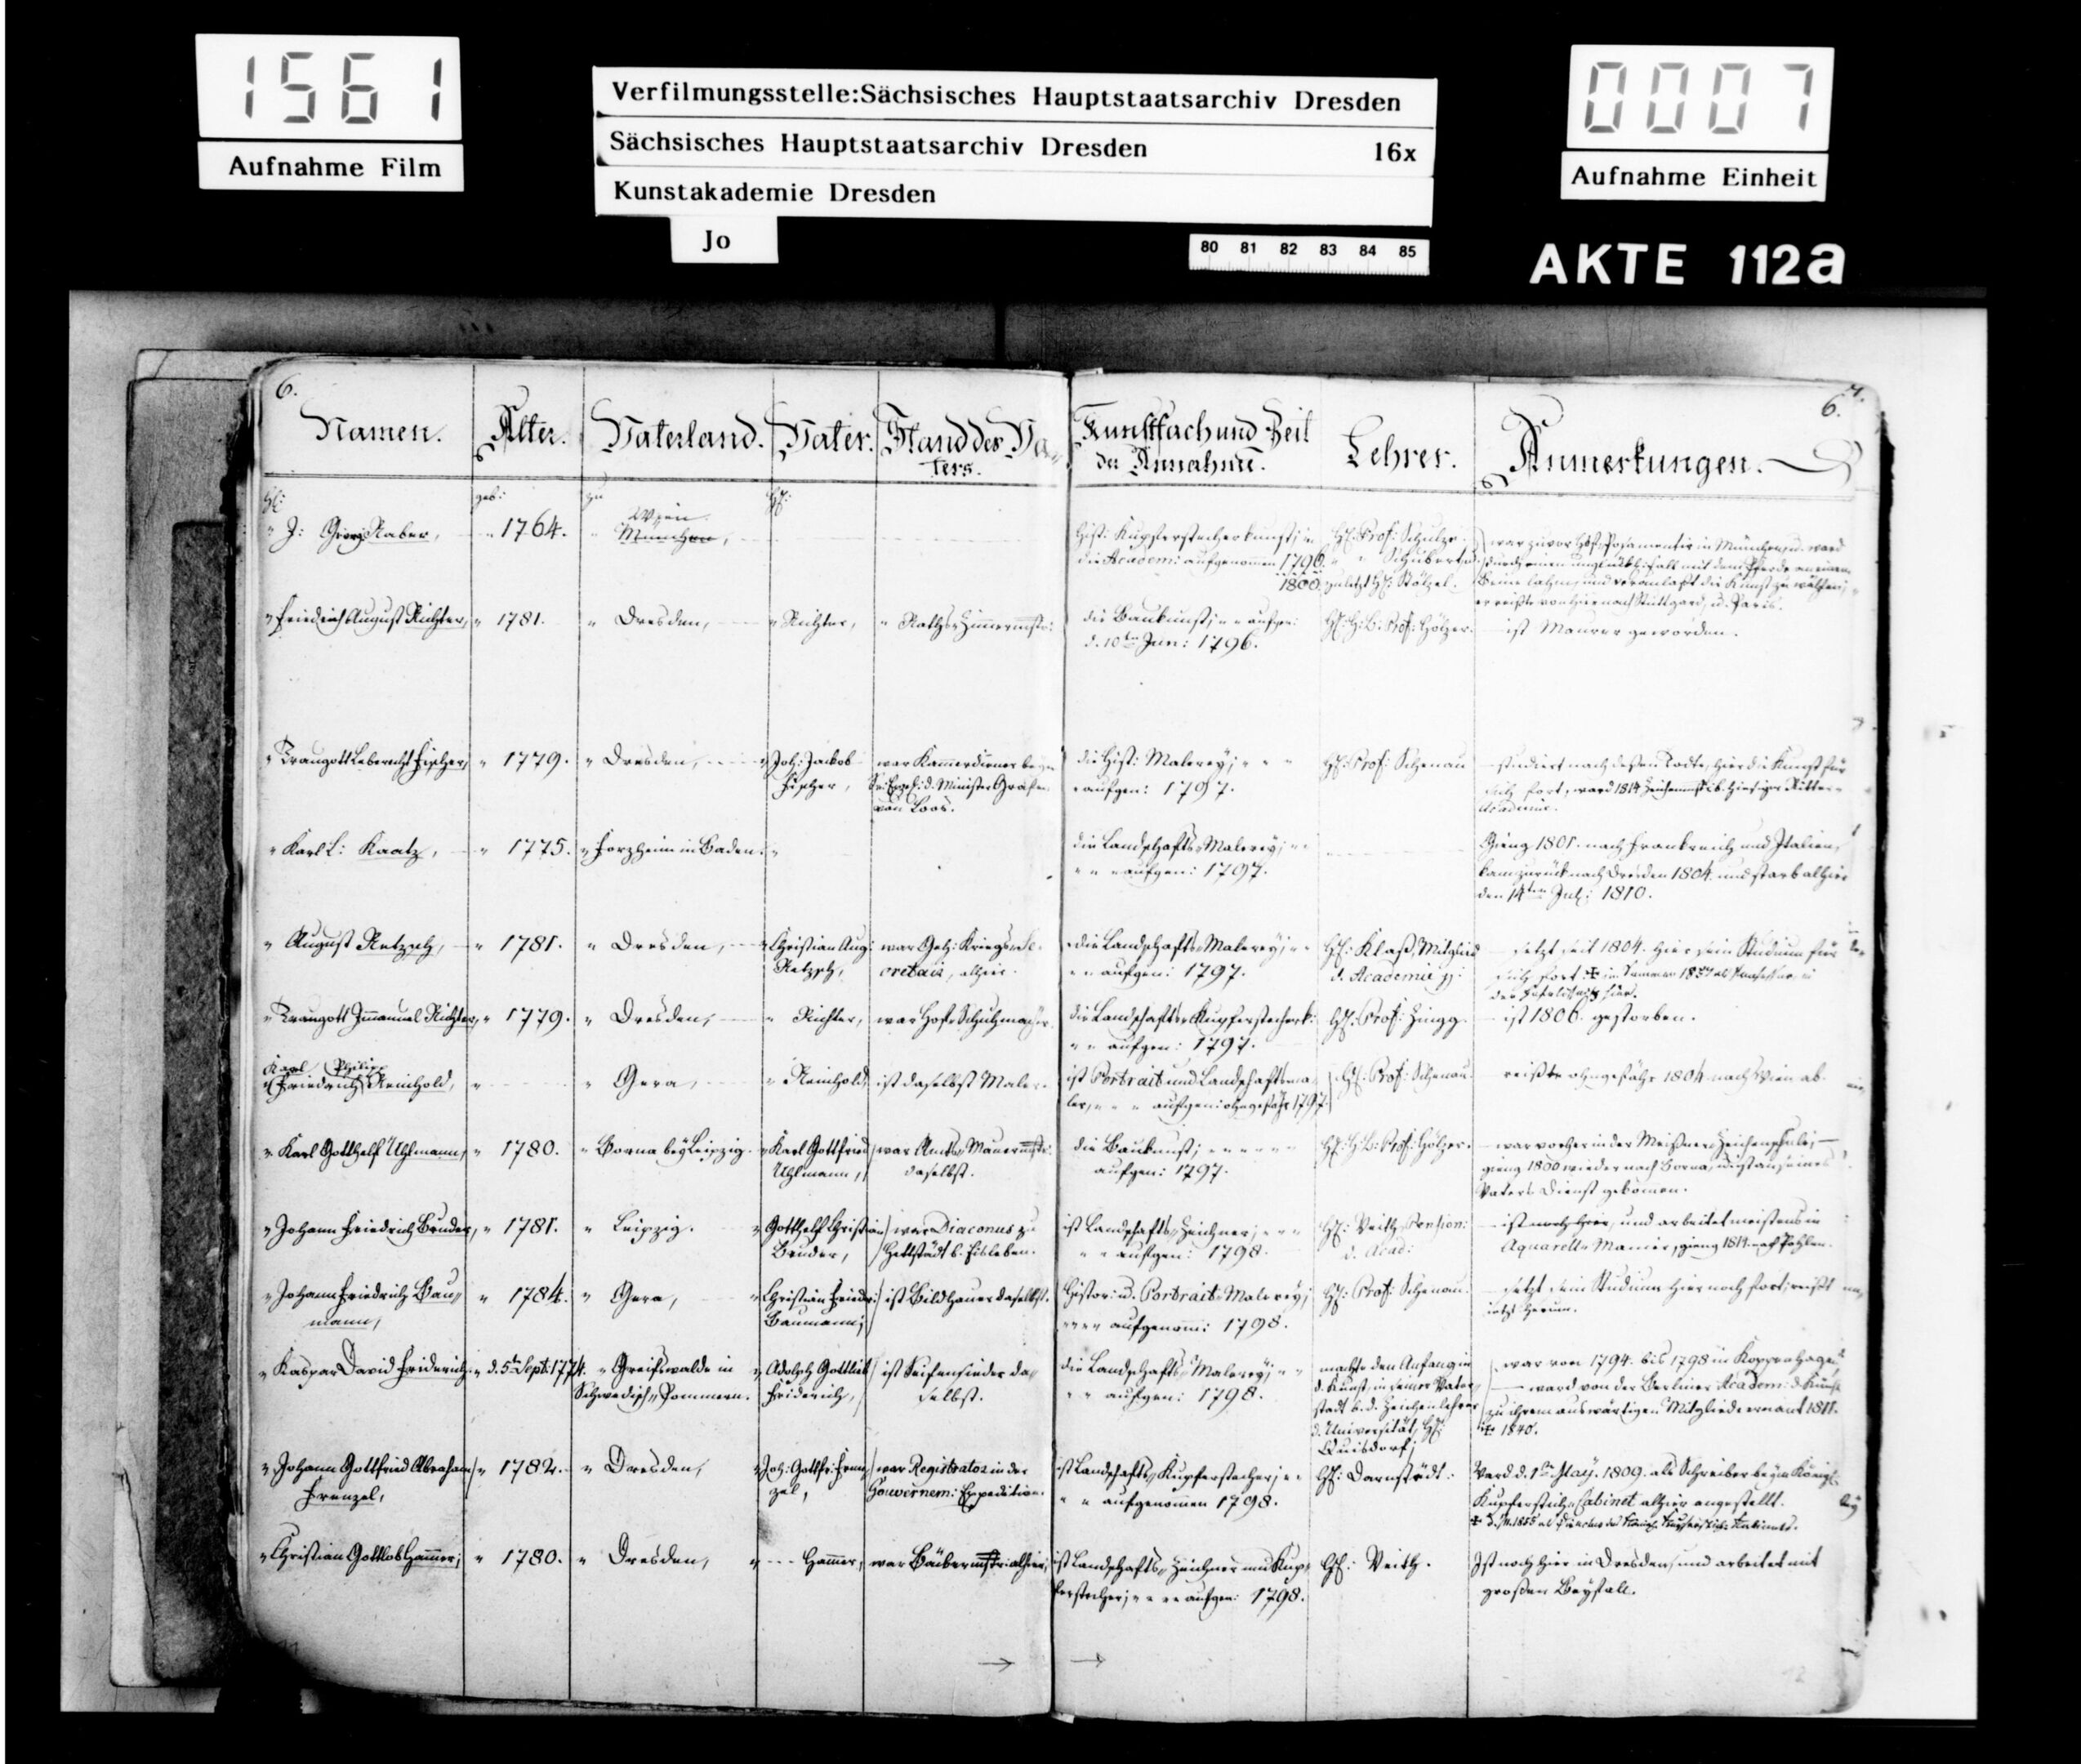 1561
Aufnahme Film
Verfilmungsstelle:Sächsisches Hauptstaatsarchiv Dresden
Sächsisches Hauptstaatsarchiv Dresden 16x
Kunstakademie Dresden
Jo
80 81 82 83 84 85
0007
Aufnahme Einheit
AKTE 112a
6.
Namen. Alter. Vaterland. Vater. Stand des Va„
ters.
Kunstfach und Zeit
der Annahme.
Lehrer. Anmerkungen.
7.
6.
geb: zu
Wien
" J: Georg Raber, " 1764. " München,
hist: Kupferstecherkunst; in
die Academ: aufgenomen 1796.
1800.
H: Prof: Schulze
" Schubert
zuletzt H: Stölzel.
war zuvor Hof-Posamentir in München, u. ward
durch einen unglückl: Fall mit dem Pferde an einem
Beine lahm, und veranlaßt die Kunst zu wählen;
er reißte von hier nach Stuttgard, u. Paris.
" Friedrich August Richter, " 1781. " Dresden, " Richter, " Raths Zimmermstr:
die Baukunst; " " aufgen:
d. 10ten Jun: 1796.
H: H: B: Prof: Hölzer.
ist Maurer geworden.
" Traugott Leberecht Fischer, " 1779. " Dresden, " Joh: Jakob
Fischer,
war Kammerdiener beym
Sr: Excel: d. Minister Grafen
von Loos.
die Hist: Malerey; " " "
" aufgen: 1797.
H: Prof: Schenau
studiert nach deßen Tode, hier die Kunst für
sich fort, ward 1814 Zeichenmstr: b. hiesiger Ritter-
Academie.
" Karl L: Kaatz, " 1775. " Forzheim in Baden. "
die Landschafts-Malerey; " "
" " " aufgen: 1797.
Gieng 1801. nach Frankreich und Italien,
kam zurück nach Dresden 1804. und starb alhier
den 14ten Jul: 1810.
" August Retzsch, " 1781. " Dresden, " Christian Aug:
Retzsch,
war Geh: Kriegs-Se-
cretair, alhier.
" die Landschafts-Malerey; " "
" " aufgen: 1797.
H: Klaß, Mitglied
d. Academie
setzt seit 1804. hier sein Studium für
sich fort.
" Traugott Immanuel Richter, " 1779. " Dresden, " Richter, war Hof-Schuhmacher.
die Landschafts-Kupferstecherk:
" " aufgen: 1797.
H: Prof: Zingg.
ist 1806. gestorben.
Karl Philipp
" Friedrich Reinhold, " " Gera, " Reinhold, ist daselbst Maler.
ist Portrait und Landschaftsma-
ler, " " " aufgen: ohngefähr 1797.
H: Prof: Schenau.
reißte ohngefähr 1804 nach Wien ab.
" Karl Gotthelf Uhlmann, " 1780. " Borna bey Leipzig. " Karl Gottfried
Uhlmann,
war Amts-Maurermstr:
daselbst.
die Baukunst; " " " " "
aufgen: 1797.
H: H: B: Prof: Hölzer.
war vorher in der Meißner Zeichenschule;
gieng 1800 wieder nach Borna, und ist an seines
Vaters Dienst gekommen.
" Johann Friedrich Bruder, " 1781. " Leipzig. " Gotthelf Christian
Bruder,
war Diaconus zu
Hettstädt b. Eisleben.
ist Landschafts-Zeichner; " " "
" " aufgen: 1798.
H: Veith, Pension:
d. Acad:
ist noch hier, und arbeitet meistens in
Aquarell-Manier, gieng 1814 nach Pohlen.
" Johann Friedrich Bau„
mann,
" 1784. " Gera, " Christian Friedr:
Baumann;
ist Bildhauer daselbst.
Histor: u. Portrait-Malerey;
" " " " aufgenom: 1798.
H: Prof: Schenau.
setzt sein Studium hier noch fort; reißt
jetzt herum.
" Kaspar David Friderich; " d. 5t Sept: 1774. " Greifswalde in
Schwedisch„ Pommern.
" Adolph Gottlieb
Friderich,
ist Seifensieder da„
selbst.
die Landschafts-Malerey; " "
" " aufgen: 1798.
machte den Anfang in
d. Kunst, in seiner Vater
stadt b. d. Zeichenlehrer
d. Universität, H:
Quisdorf;
war von 1794. bis 1798 in Koppenhagen,
ward von der Berliner Academ: d. Künste
zu ihrem auswärtigen Mitgliede ernant 1811.
✝ 1840.
" Johann Gottfried Abraham
Frenzel,
" 1782. " Dresden, " Joh: Gottfr: Fren„
zel,
war Registrator in der
Gouvernem: Expedition.
ist Landschafts-Kupferstecher; " "
" " aufgenommen 1798.
H: Darnstedt.
Ward d. 1ten May. 1809. als Schreiber beym Königl:
Kupferstich-Cabinet alhier angestellt.
✝ 1855 als Director des Königl. Kupferstich-Kabinets.
" Christian Gottlob Hammer; " 1780. " Dresden, " Hammer, war
ist Landschafts„ Zeichner und Kup„
ferstecher; " " " " aufgen: 1798.
H: Veith.
Ist noch hier in Dresden, und arbeitet mit
großen Beyfall.